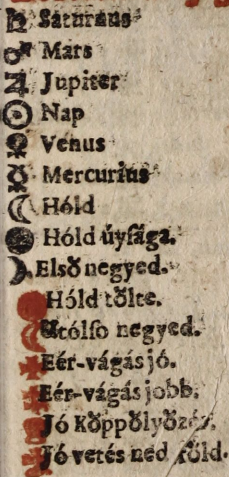 ♄ Saturnus
♂ Mars
♃ Jupiter
☉ Nap
♀ Venus
☿ Mercurius
☾ Hóld
Hóld úyſága.
Elsõ negyed.
Hóld tõlte.
Utólſo negyed.
Eér-vágás jó.
Eér-vágás jobb.
Jó Kõppõlyõzés.
Jó vetés ned fõld.